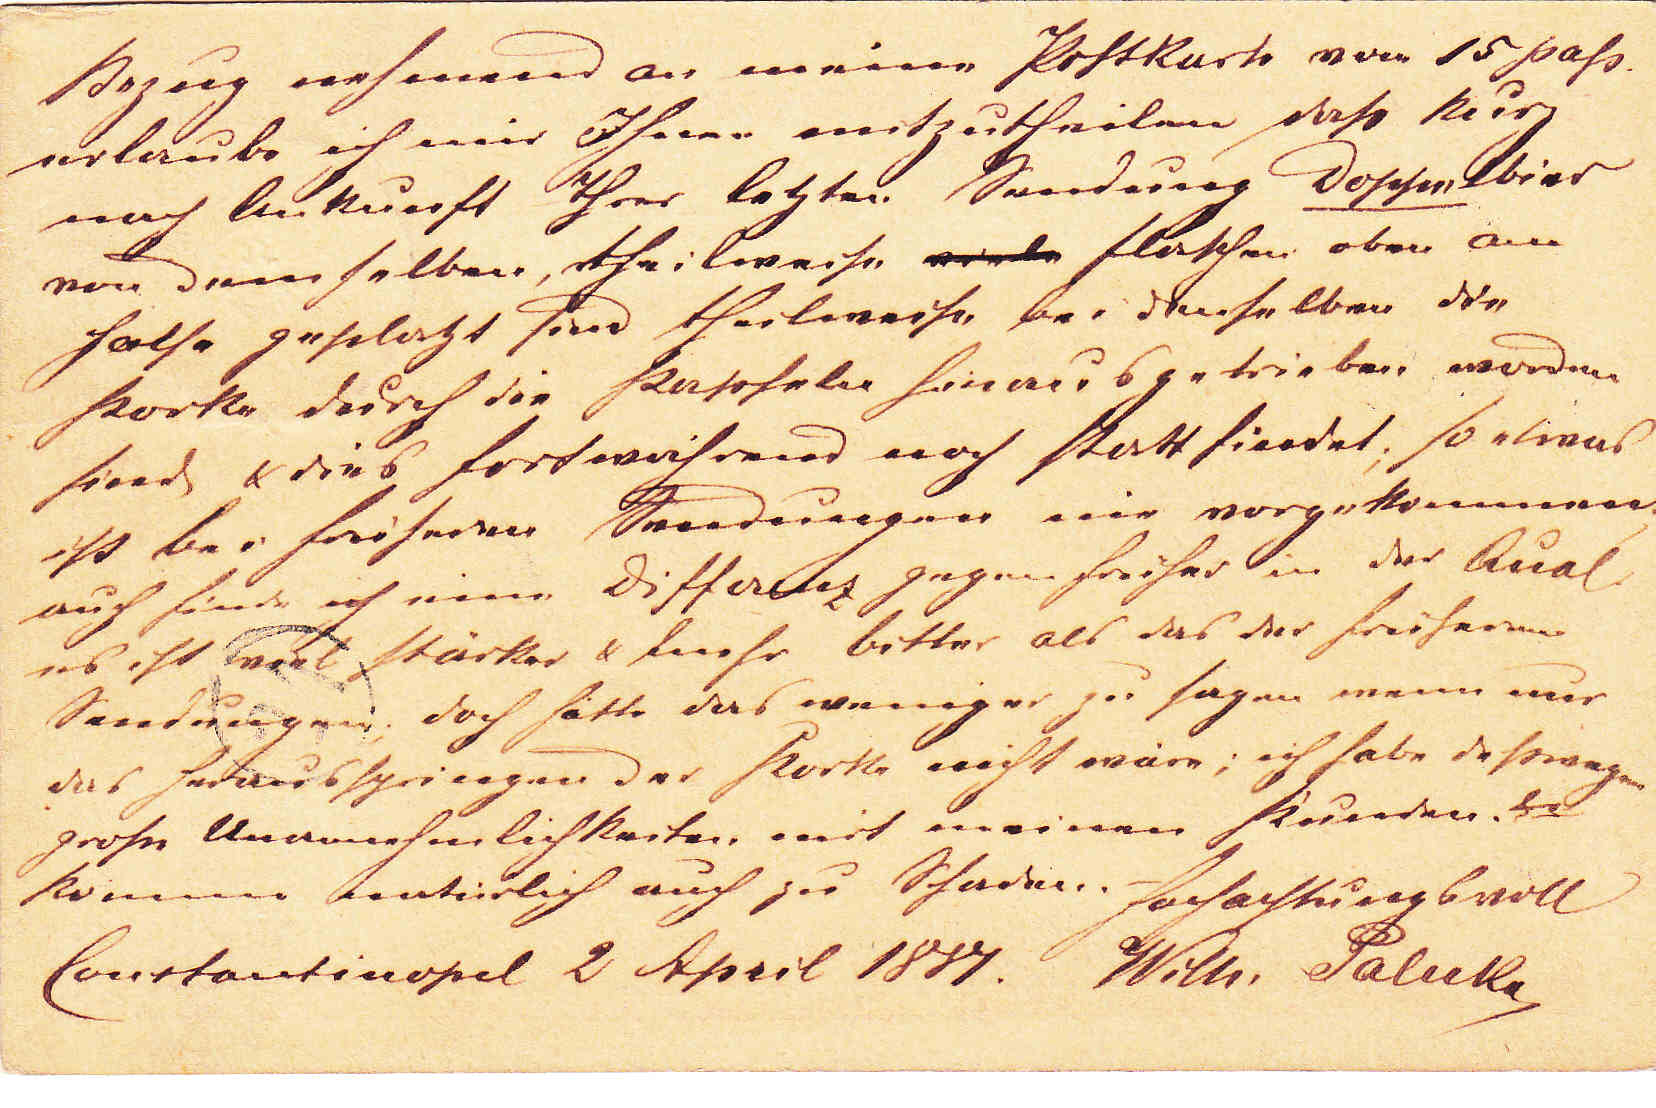 Bezug nehmend an meine Postkarte vom 15 pass.
erlaube ich mir Ihnen mitzutheilen dass kurz
nach Ankunft Ihrer letzten Sendung Doppelbier
von demselben, theilweise viele flaschen oben am
Halse geplatzt sind theilweise bei denselben die
Korke durch die Kapseln hinausgetrieben worden
sind & dies fortwährend noch statt findet; so etwas
ist bei früheren Sendungen nie vorgekommen,
auch finde ich eine Differenz gegen früher in der Qual.
es ist viel stärker & mehr bitter als das der früheren
Sendungen, doch hätte das weniger zu sagen wenn nur
das herausspringen der Korke nicht wäre; ich habe desswegen
grosse Unannehmlichkeiten mit meinen Kunden. &
komme natürlich auch zu Schaden. Hochachtungsvoll
Constantinopel 2 April 1877. Wilh.